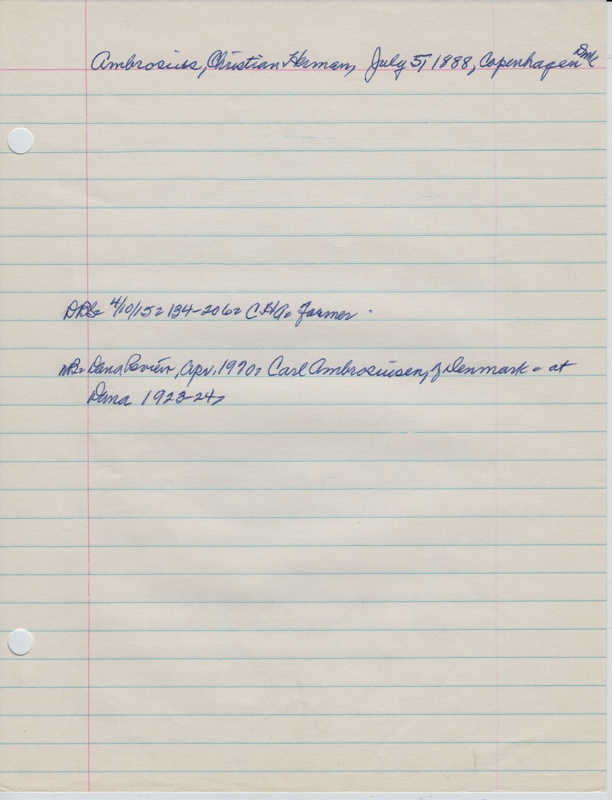 Ambrosius, Christian Herman, July 5, 1888, Copenhagen Dmk
4/10/15= 134-206= C HA= Farmer
NB= Dana Review, Apr. 1970= Carl Ambrosiusen, of Denmark = at
Dana 1923-24,